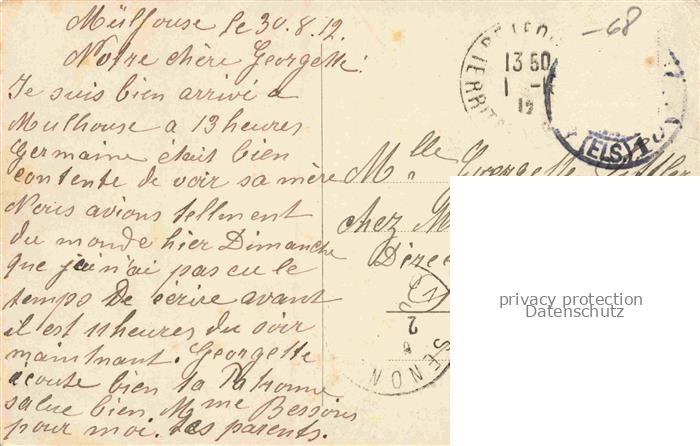 Mülhouse le 30.8.12.
Notre chère Georgette!
Je suis bien arrivé a
Mulhouse a 13 heures
Germaine était bien
contente de voir sa mère
Nous avions tellment
du monde hier Dimanche
que je n'ai pas eu le
temps de écrire avant
il est 11 heures du soir
maintnant. Georgette
écoute bien ta Patronne
salue bien Mme Bessons
pour moi. tes parents.
-68
13 50
1
12
TERRIT
(ELS)
Mlle Georgette
chez M
SENON
privacy protection
Datenschutz